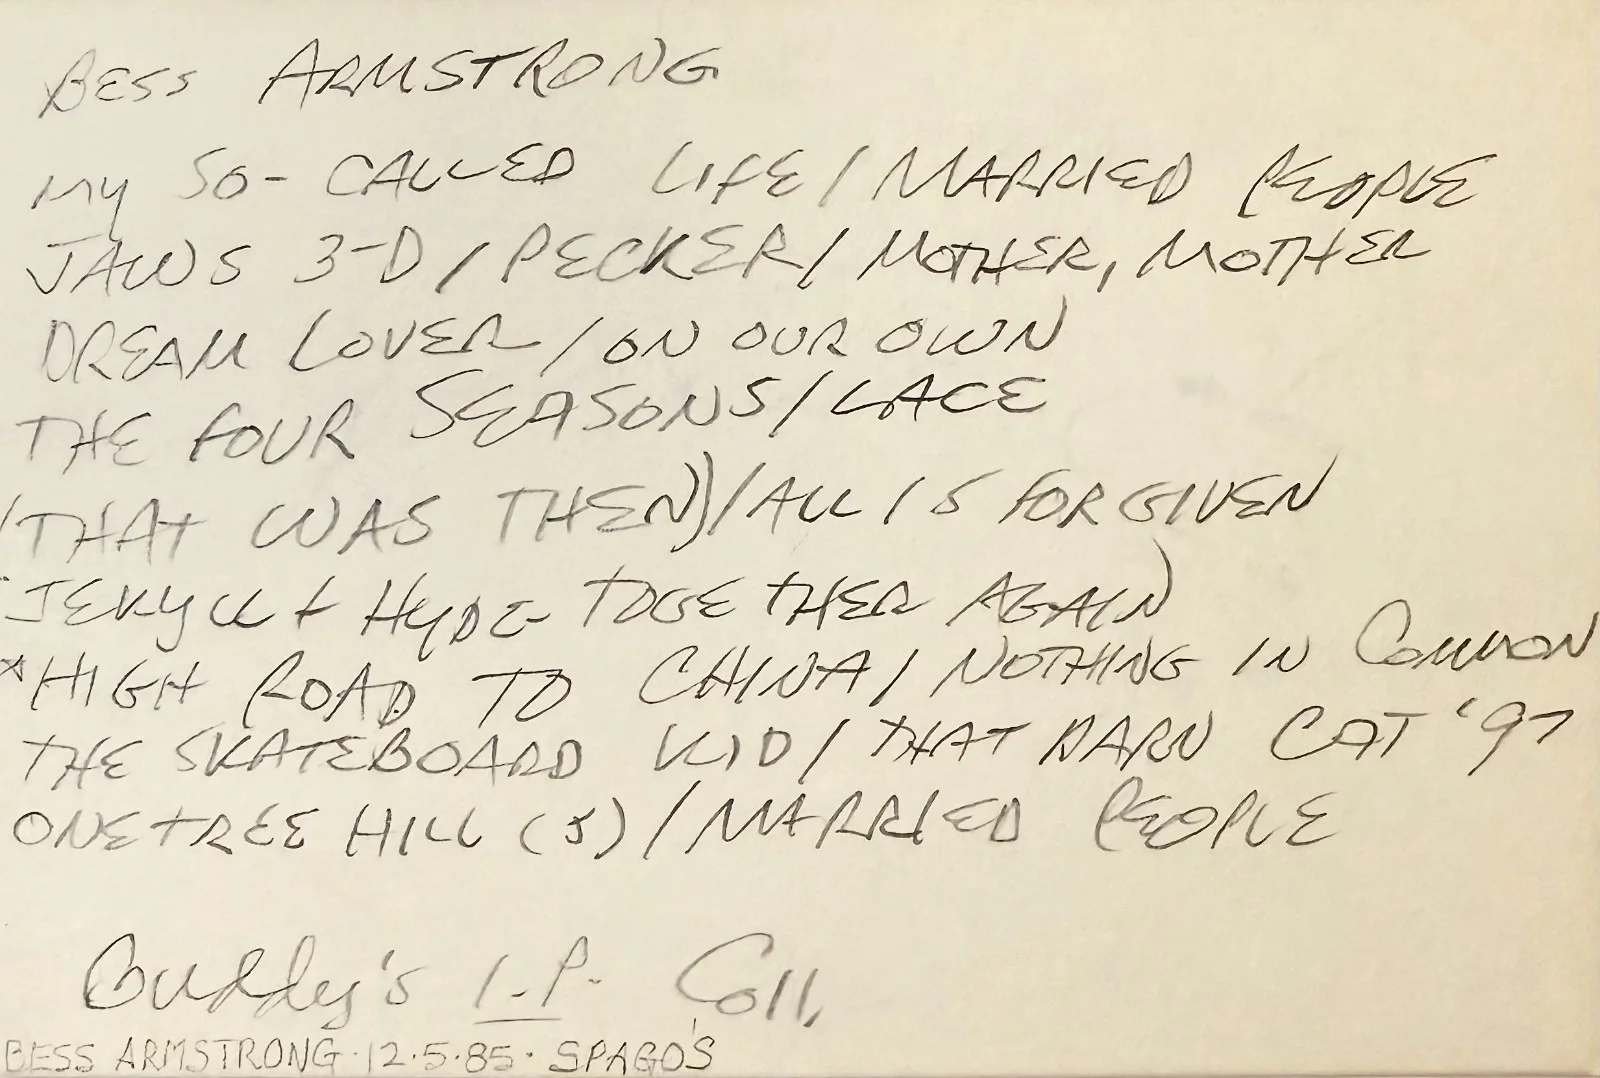 BESS ARMSTRONG
MY SO-CALLED LIFE / MARRIED PEOPLE
JAWS 3-D / PECKER / MOTHER, MOTHER
DREAM LOVER / ON OUR OWN
THE FOUR SEASONS / LACE
(THAT WAS THEN) / ALL IS FORGIVEN
JEKYLL + HYDE TOGETHER AGAIN)
*HIGH ROAD TO CHINA / NOTHING IN COMMON
THE SKATEBOARD KID / THAT DARN CAT '97
ONE TREE HILL (5) / MARRIED PEOPLE
Buddy's I.P. Coll.
BESS ARMSTRONG · 12·5·85 · SPAGO'S